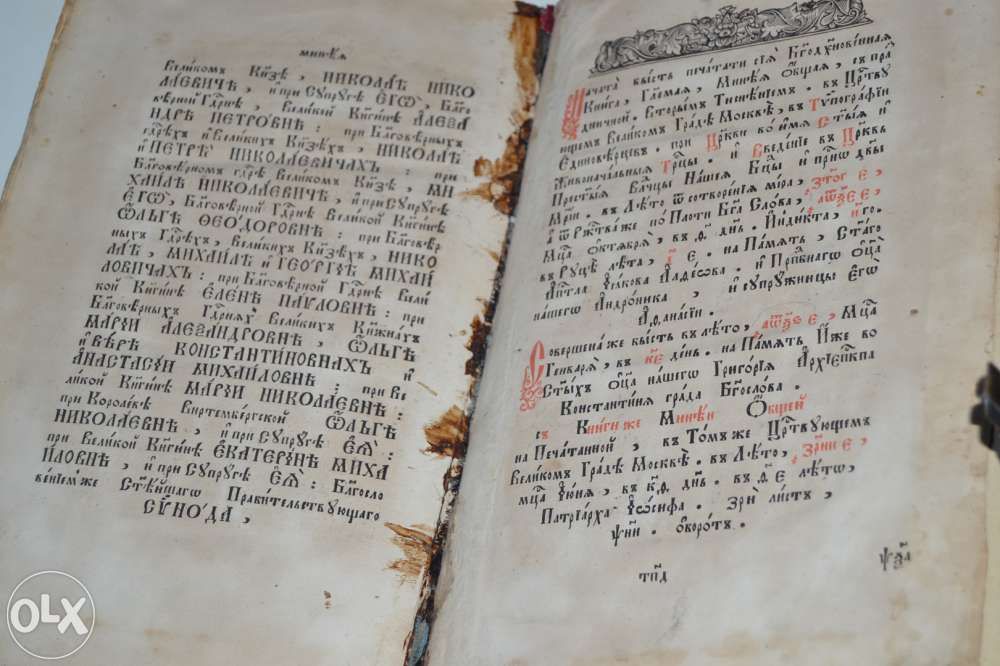 мине́а
Вели́комъ Кн҃зѣ, НИКОЛАѢ НИКО
ЛАЕВИЧѢ, и҆ при СꙋПРꙋГѢ Е҆ГѠ̀, Бл҃го
вѣрной Гдⷭ҇рнѣ, Великой Кнѧги́нѣ АЛЕѮА
НДРѢ ПЕТРОВНѢ: при Бл҃говѣрныхъ
гдⷭ҇рѣхъ и҆ Вели́кихъ Кн҃зѣхъ, НИКОЛАѢ
и҆ ПЕТРѢ НИКОЛАЕВИЧАХЪ: при
Бл҃говѣрномъ гдⷭ҇рѣ Вели́комъ Кн҃зѣ, МИ
ХАИЛѢ НИКОЛАЕВИЧѢ, и҆ при СꙋПРꙋГѢ
Е҆ГѠ̀, Бл҃говѣрной Гдⷭ҇рнѣ Вели́кой Кнѧги́нѣ
Ѻ҆ЛЬГѢ ѲЕОДОРОВНѢ: при Бл҃говѣр
ныхъ Гдⷭ҇рѣхъ, Вели́кихъ Кн҃зѣхъ, НИКО
ЛАѢ, МИХАИЛѢ и҆ ГЕОРГІѢ МИХАИ
ЛОВИЧАХЪ: при Бл҃говѣрной Гдⷭ҇рнѣ Вели́
кой Кнѧги́нѣ Е҆ЛЕНѢ ПАѴЛОВНѢ: при
Бл҃говѣрныхъ Гдⷭ҇рнѧхъ Вели́кихъ Кнѧжна́хъ
МАРІИ АЛЕѮАНДРОВНѢ, Ѻ҆ЛЬГѢ
и҆ ВѢРѢ КОНСТАНТИНОВНАХЪ и҆
АНАСТАСІИ МИХАИЛОВНѢ: при Ве
ли́кой Кнѧги́нѣ МАРІИ НИКОЛАЕВНѢ:
при Короле́вѣ Виртембе́ргской Ѻ҆ЛЬГѢ
НИКОЛАЕВНѢ, и҆ при СꙋПРꙋГѢ Е҆Ѧ̀:
при Вели́кой Кнѧги́нѣ Е҆КАТЕРИНѢ МИХА
ИЛОВНѢ, и҆ при СꙋПРꙋГѢ Е҆Ѧ̀: Бл҃госло
ве́нїемже Ст҃ѣ́йшагѡ Прави́тельствꙋющагѡ
СѴНОДА,
Зача́та бы́сть печа́тати сїѧ̀ Бг҃одꙋхнове́ннаѧ
Кни́га, Гл҃емаѧ, Мине́ѧ О҆́бщаѧ, съ пра́
здничной. Вторы́мъ Тисне́нїемъ. въ Црⷭ҇твꙋ
ющемъ Вели́комъ Гра́дѣ Москвѣ̀, въ Тѷпогра́фїи
Е҆диновѣ́рцевъ. при Цр҃кви во и҆́мѧ Ст҃ы́ѧ и҆
Живонача́льныѧ Трⷪ҇цы. и҆ Введе́нїе въ Цр҃ковь
Прест҃ы́ѧ Влⷣчцы На́шеѧ Бцⷣы и҆ прⷭ҇нѡ дв҃ы
Мр҃їи. въ Лѣ́то ѿ сотворе́нїѧ мі́ра, ҂зто҃г е,
а ѿ Рж҃тва́же по Пло́ти Бг҃а Сло́ва,
Мцⷭ҇а О҆ктѧ́брѧ, въ д҃ дн҃ь. И҆нді́кта, го.
въ Рꙋцѣ̀ лѣ́та, е. на Па́мѧть, Ст҃а́гѡ
А҆пⷭ҇тла І҆а́кова А҆лфе́ова. и҆ Прпⷣбнагѡ Ѻ҆ц҃а̀
на́шегѡ А҆ндро́ника, и҆ сꙋпрꙋ́жницы Е҆гѡ̀
А҆ѳана́сїи.
Соверше́на же бы́сть въ лѣ́то, Мцⷭ҇а
Генва́рѧ, въ к҃е де́нь. на Па́мѧть И҆́же во
Ст҃ы́хъ Ѻ҆ц҃а̀ на́шегѡ Григо́рїѧ А҆рхїепⷭ҇кпа
Константі́на гра́да Бг҃осло́ва.
съ Кни́ги же Мине́и О҆́бщей
на Печа́танной, въ То́мъ же Црⷭ҇твꙋющемъ
Вели́комъ Гра́дѣ Москвѣ̀. въ Лѣ́то,
мцⷭ҇а І҆ю́нїа, въ к҃д дн҃ь. въ Лѣ́то,
Патрїа́рха І҆ѡ́сифа. Зрѝ ли́стъ,
ѱ҃ни. ѻ҆боро́тъ.
тп҃д
OLX